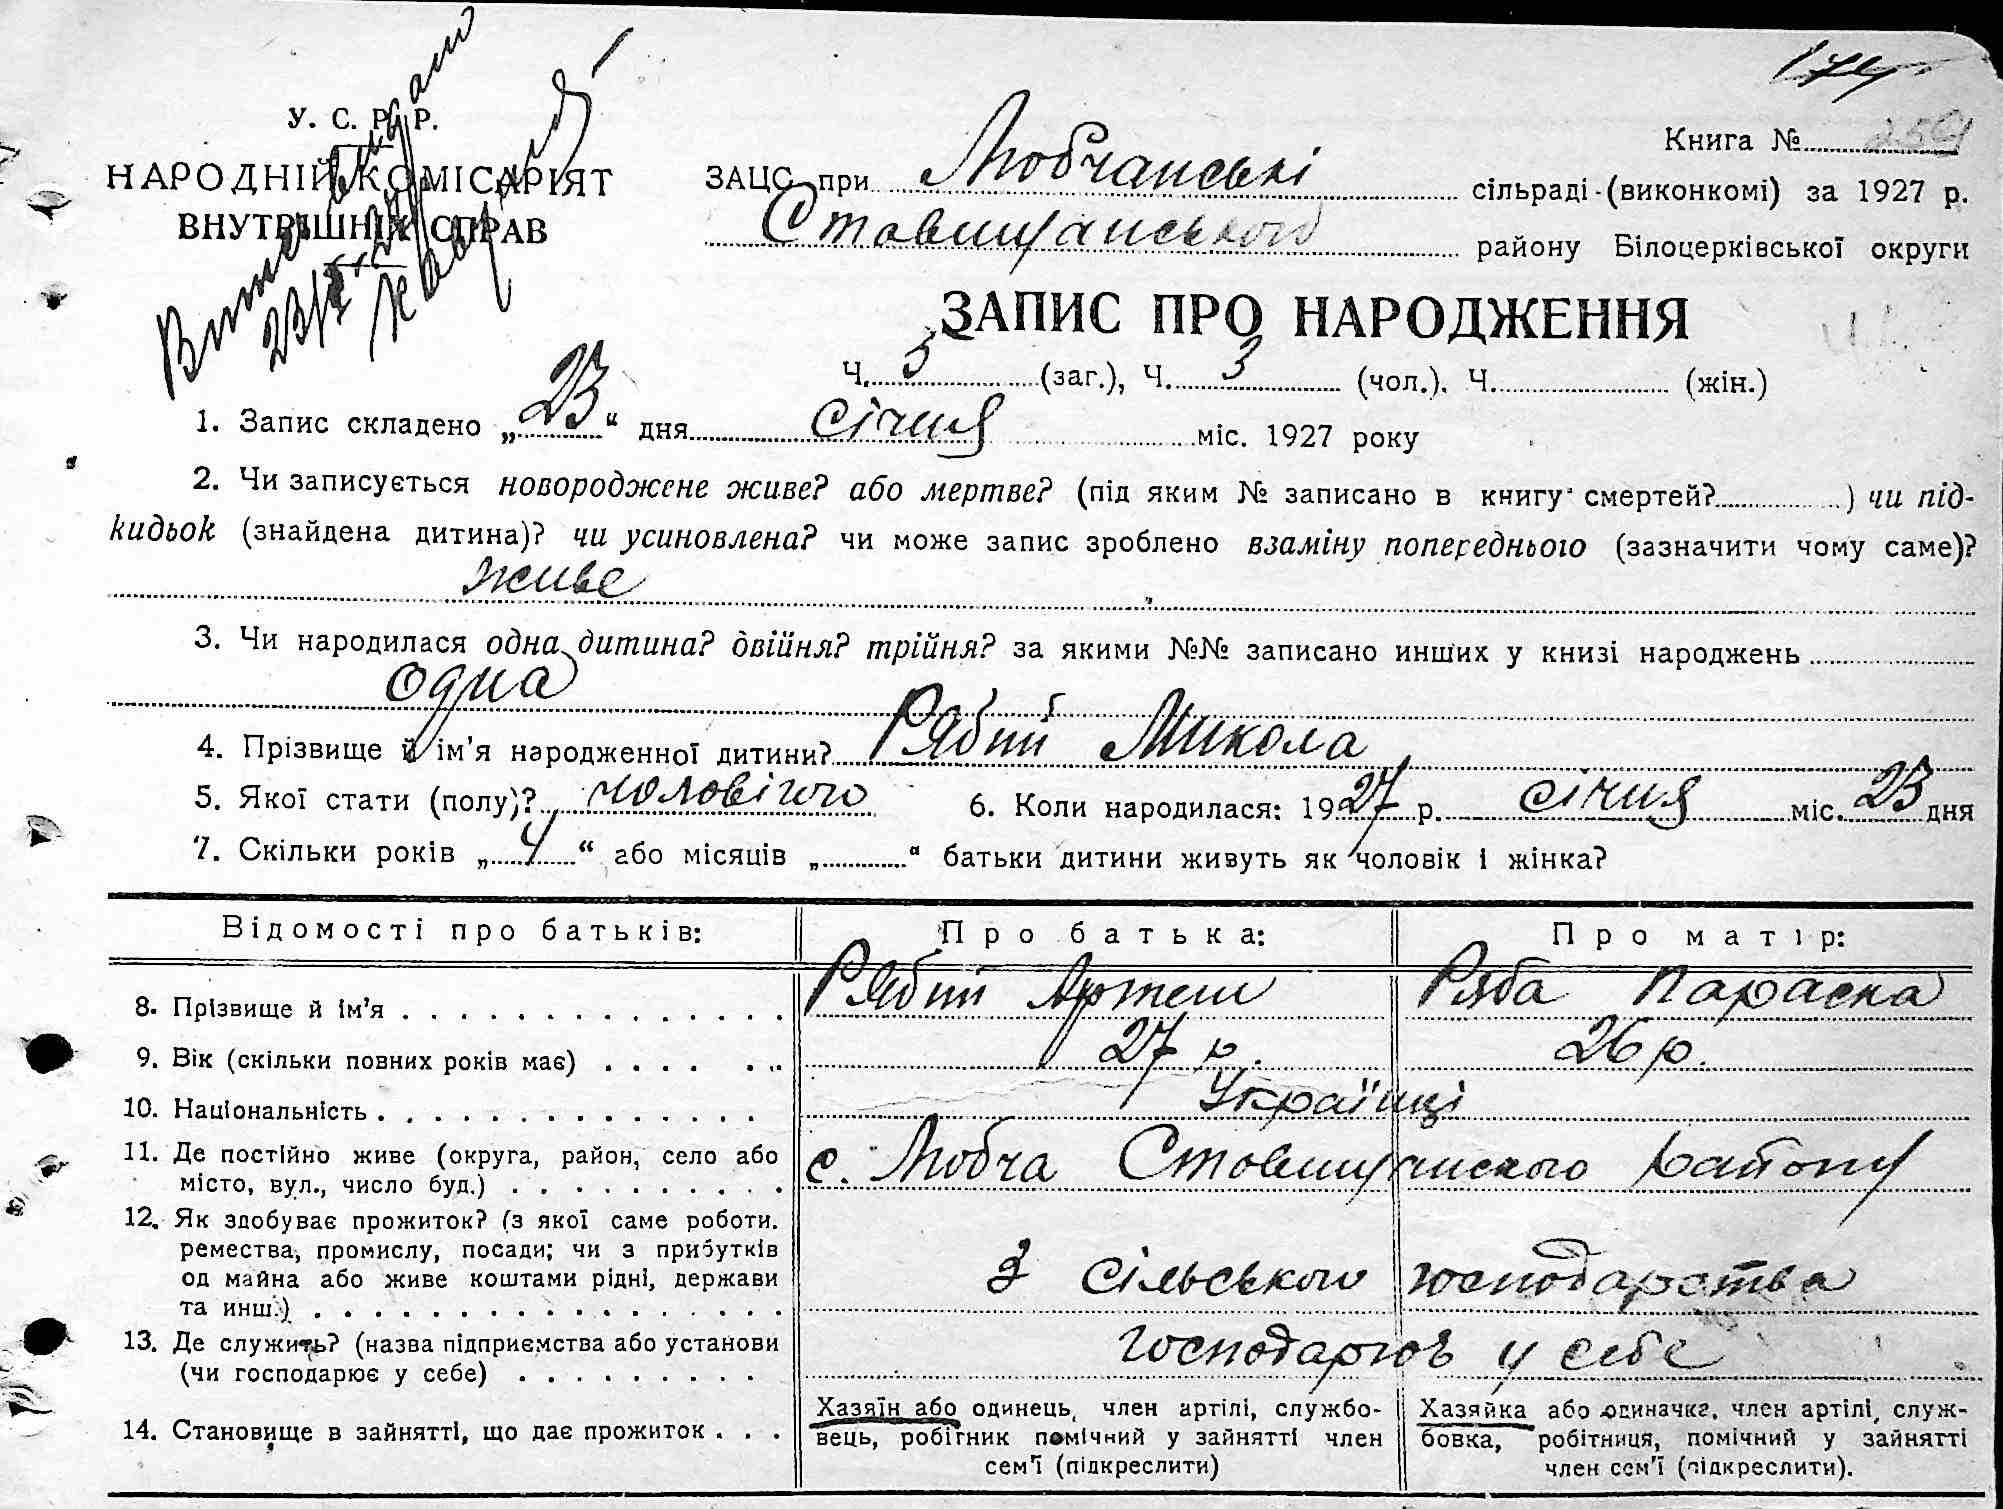 174
У. С. Р. Р.
НАРОДНІЙ КОМІСАРІЯТ
ВНУТРІШНІХ СПРАВ
Книга №
ЗАЦС при Любчанські сільраді (виконкомі) за 1927 р.
Ставищанського району Білоцерківської округи
ЗАПИС ПРО НАРОДЖЕННЯ
Ч. 5 (заг.), Ч. 3 (чол.). Ч. (жін.)
1. Запис складено „23“ дня січня міс. 1927 року
2. Чи записується новороджене живе? або мертве? (під яким № записано в книгу смертей? ) чи під-
кидьок (знайдена дитина)? чи усиновлена? чи може запис зроблено взаміну попереднього (зазначити чому саме)?
живе
3. Чи народилася одна дитина? двійня? трійня? за якими №№ записано инших у книзі народжень
одна
4. Прізвище й ім’я народженної дитини? Рябий Микола
5. Якої стати (полу)? чоловічого 6. Коли народилася: 1927 р. січня міс. 23 дня
7. Скільки років „4“ або місяців „ “ батьки дитини живуть як чоловік і жінка?
Відомості про батьків: Про батька: Про матір:
8. Прізвище й ім’я Рябий Артем Ряба Параска
9. Вік (скільки повних років має) 27 р. 26 р.
10. Національність Українці
11. Де постійно живе (округа, район, село або
місто, вул., число буд.) с. Любча Ставищанского району
12. Як здобуває прожиток? (з якої саме роботи.
ремества, промислу, посади; чи з прибутків
од майна або живе коштами рідні, держави
та инш.) З сільського господарства
13. Де служить? (назва підприємства або установи
(чи господарює у себе) господарюв у себе
14. Становище в зайнятті, що дає прожиток
Хазяїн або одинець, член артілі, службо-
вець, робітник помічний у зайнятті член
сем’ї (підкреслити)
Хазяйка або одиначка, член артілі, служ-
бовка, робітниця, помічний у зайнятті
член сем’ї (підкреслити).